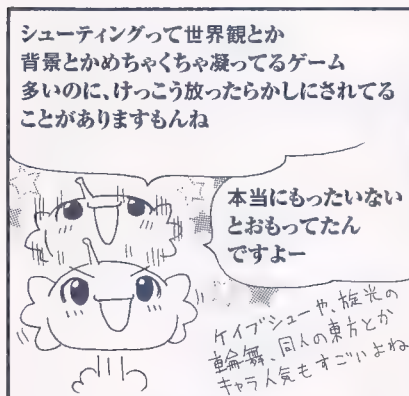 シューティングって世界観とか
背景とかめちゃくちゃ凝ってるゲーム
多いのに、けっこう放ったらかしにされてる
ことがありますもんね
本当にもったいない
とおもってたん
ですよー
ケイブシューや、旋光の
輪舞、同人の東方とか
キャラ人気もすごいよね